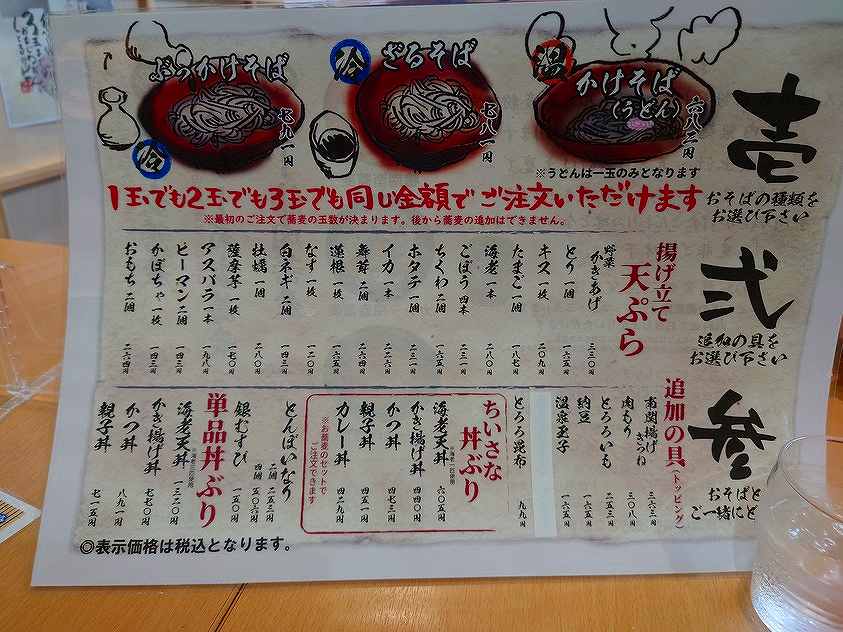 冷
ぶっかけそば
七九一円
冷
ざるそば
七八一円
温
かけそば
(うどん)
六八二円
※うどんは一玉のみとなります
1玉でも2玉でも3玉でも同じ金額でご注文いただけます
※最初のご注文で蕎麦の玉数が決まります。後から蕎麦の追加はできません。
壱
おそばの種類を
お選び下さい
弐
追加の具を
お選び下さい
参
おそばと
ご一緒にど
揚げ立て
天ぷら
野菜かきあげ 三三〇円
とり 一個 一六五円
キス 一枚 二〇九円
たまご 一個 一八七円
海老 一本 二八〇円
ごぼう 四本 二三一円
ちくわ 二個 一六五円
ホタテ 一個 二三一円
イカ 一本 二二六円
舞茸 二個 二六四円
蓮根 一枚 一六五円
なす 一枚 一二〇円
白ネギ 二個 一四三円
牡蠣 一個 二八〇円
薩摩芋 一枚 一七〇円
アスパラ 一本 一九八円
ピーマン 二個 一四三円
かぼちゃ 一枚 一四三円
おもち 二個 二六四円
追加の具(トッピング)
栃尾揚げきつね 三六三円
肉もり 三〇八円
とろろいも 二五三円
納豆 一六五円
温泉玉子 一六五円
とろろ昆布 九九円
ちいさな
丼ぶり
海老天丼 六〇五円
※海老一本使用
かき揚げ丼 四四〇円
かつ丼 四七三円
親子丼 四五一円
カレー丼 四二九円
※お蕎麦のセットで
ご注文できます
とんぼいなり 二個 二五三円
四個 五〇六円
銀むすび 一五〇円
単品丼ぶり
海老天丼 一三二〇円
※海老三本使用
かき揚げ丼 七七〇円
かつ丼 八九一円
親子丼 七一五円
◎表示価格は税込となります。